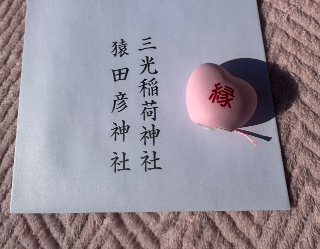 三光稲荷神社
猿田彦神社
縁